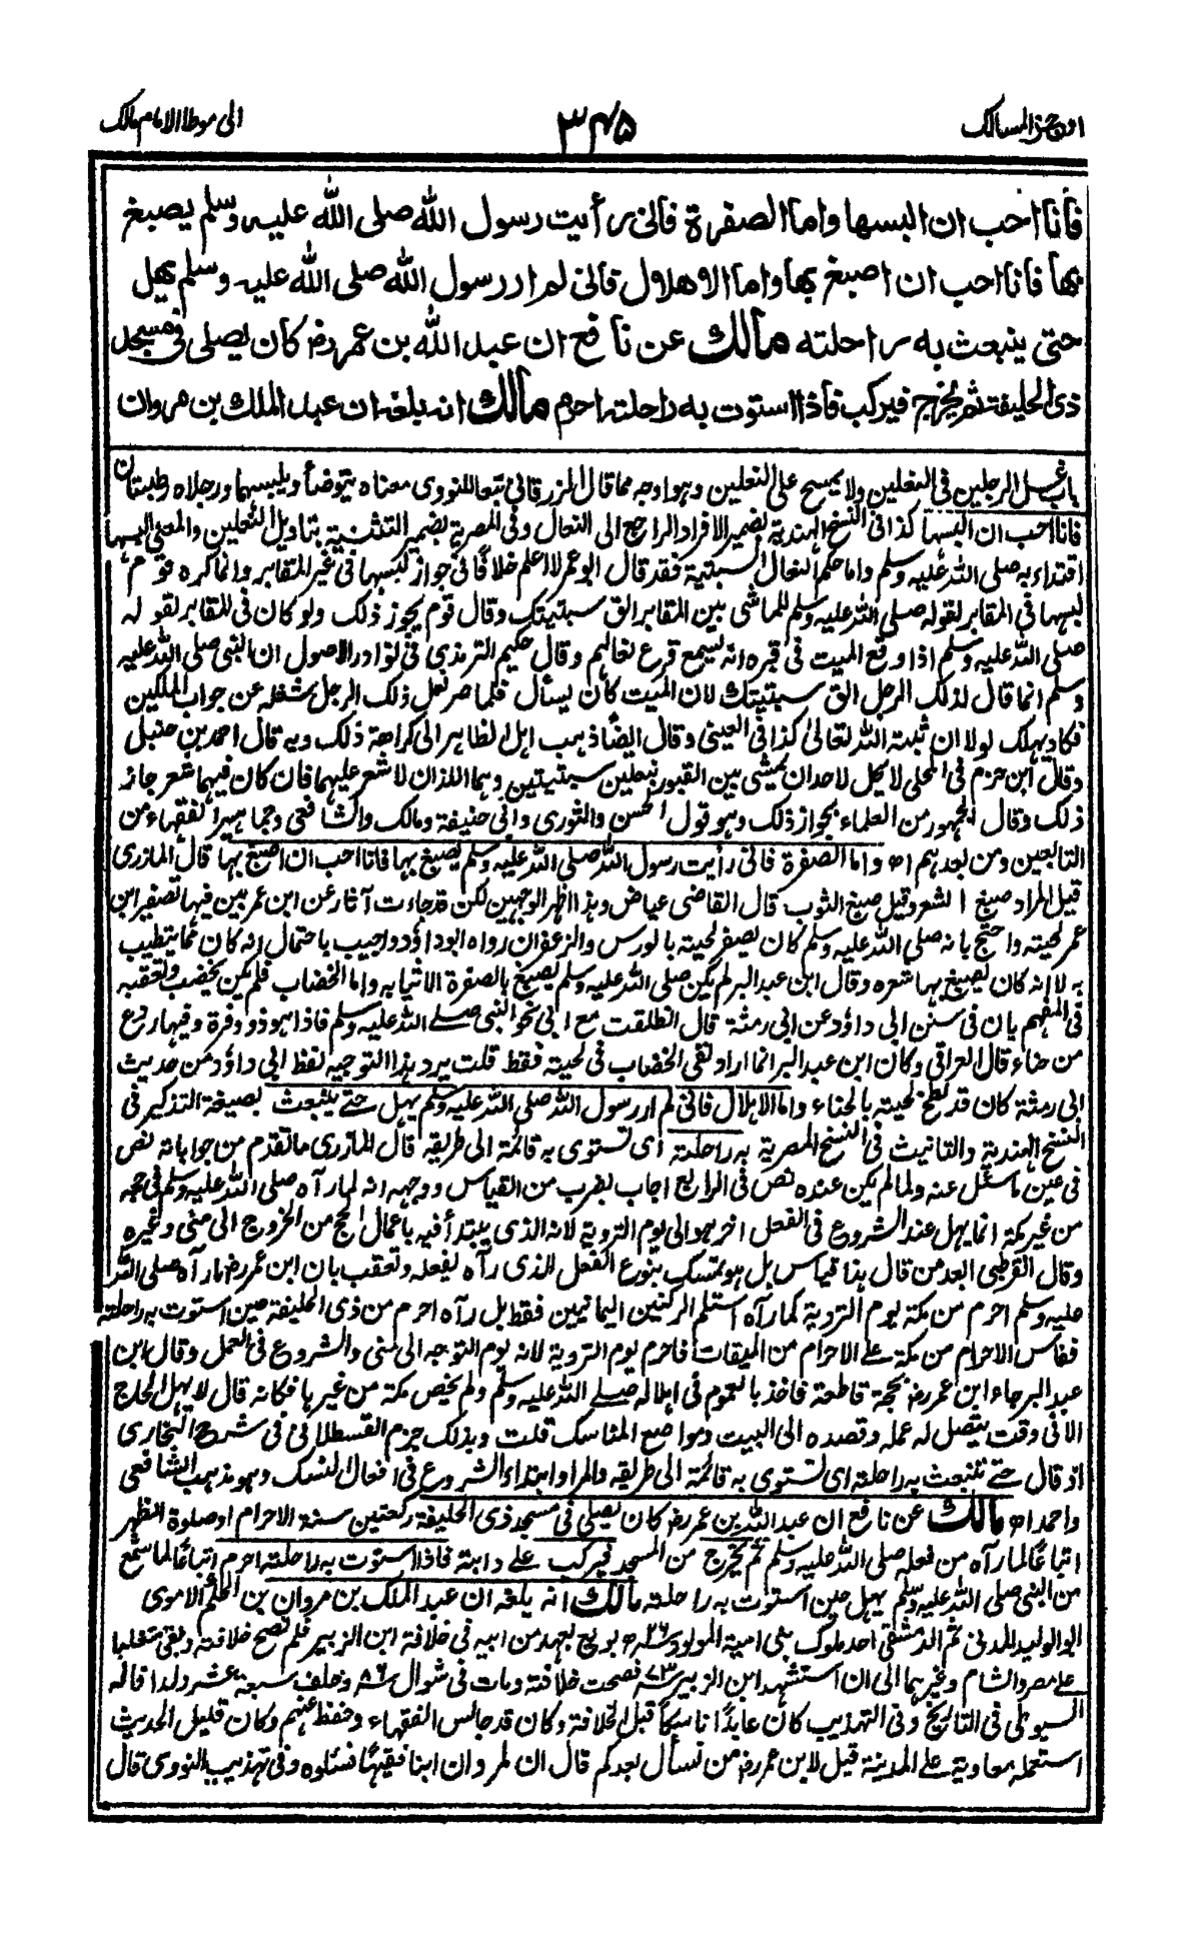 اوجز المسالك
٣٤٥
الى موطا الامام مالك
فأنا احب ان البسها واما الصفرة فانى رأيت رسول الله صلى الله عليه وسلم يصبغ
بها فانا احب ان اصبغ بها واما الاهلال فانى لم ار رسول الله صلى الله عليه وسلم يهل
حتى ينبعث به راحلته مالك عن نافع ان عبد الله بن عمر رض كان يصلى فى مسجد
ذى الحليفة ثم يخرج فيركب فاذا استوت به راحلته احرم مالك انه بلغه ان عبد الملك بن مروان
باب غسل الرجلين فى النعلين ولا يمسح على النعلين وهو اوجه مما قال الزرقانى تبعا للنووى معناه يتوضأ ويلبسهما ورجلاه رطبتان
فانا احب ان البسها كذا فى النسخ الهندية بضمير الافراد الراجع الى النعال وفى المصرية بضمير التثنية بتاويل النعلين والمعنى البسها
اقتداء به صلى الله عليه وسلم واما حكم النعال السبتية فقد قال ابو عمر لا اعلم خلافًا فى جواز لبسها فى غير المقابر وانما كره قوم
لبسها فى المقابر لقوله صلى الله عليه وسلم للماشى بين المقابر الق سبتيتك وقال قوم يجوز ذلك ولو كان فى المقابر لقوله
صلى الله عليه وسلم اذا وقع الميت فى قبره انه ليسمع قرع نعالهم وقال حكيم الترمذى فى نوادر الاصول ان النبى صلى الله عليه
وسلم انما قال لذلك الرجل الق سبتيتك لان الميت كان يسأل فلما صر نعل ذلك الرجل شغله عن جواب الملكين
فكاد يهلك لولا ان ثبته الله تعالىٰ كذا فى العينى وقال ايضًا ذهب اهل الظاهر الى كراهة ذلك وبه قال احمد بن حنبل
وقال ابن حزم فى المحلى لا يحل لاحد ان يمشى بين القبور بنعلين سبتيتين وهما اللذان لا شعر عليهما فان كان فيهما شعر جاز
ذلك وقال الجمهور من العلماء بجواز ذلك وهو قول الحسن والثورى وابى حنيفة ومالك والشافعى وجماهير الفقهاء من
التابعين ومن بعدهم اه واما الصفرة فانى رأيت رسول الله صلى الله عليه وسلم يصبغ بها فانا احب ان اصبغ بها قال المازرى
قيل المراد صبغ الشعر وقيل صبغ الثوب قال القاضى عياض وهذا اظهر الوجهين لكن قد جاءت آثار عن ابن عمر بين فيها تصفير ابن
عمر لحيته واحتج بانه صلى الله عليه وسلم كان يصفر لحيته بالورس والزعفران رواه ابو داؤد واجيب باحتمال انه كان مما يتطيب
به لا انه كان يصبغ بها شعره وقال ابن عبد البر لم يكن صلى الله عليه وسلم يصبغ بالصفرة الا ثيابه واما الخضاب فلم يكن يخضب وتعقبه
فى المفهم بان فى سنن ابى داؤد عن ابى رمثة قال انطلقت مع ابى نحو النبى صلے الله عليه وسلم فاذا هو ذو وفرة وفيها ردع
من حناء قال العراقى وكان ابن عبد البر انما اراد نفى الخضاب فى لحيته فقط قلت يرد هذا التوجيه لفظ ابى داؤد من حديث
ابى رمثة كان قد لطخ لحيته بالحناء واما الاهلال فانى لم ار رسول الله صلى الله عليه وسلم يهل حتے ينبعث بصيغة التذكير فى
النسخ الهندية والتانيث فى النسخ المصرية به راحلته اى تستوى به قائمة الى طريقه قال المازرى ما تقدم من جوابانه نص
فى عين ما سئل عنه ولما لم يكن عنده نص فى الرابع اجاب بضرب من القياس ووجهه انه لما رآه صلى الله عليه وسلم فى حجه
من غير مكة انما يهل عند الشروع فى الفعل اخر هو الى يوم التروية لانه الذى يبتدأ فيه باعمال الحج من الخروج الى منى وغيره
وقال القرطبى ابعد من قال هذا قياس بل هو تمسك بنوع الفعل الذى رآه يفعله وتعقب بان ابن عمر رض ما رآه صلى الله
عليه وسلم احرم من مكة يوم التروية كما رآه استلم الركنين اليمانيين فقط بل رآه احرم من ذى الحليفة حين استوت به راحلته
فقاس الاحرام من مكة علے الاحرام من الميقات فاحرم يوم التروية لانه يوم التوجه الى منى والشروع فى العمل وقال ابن
عبد البر جاء ابن عمر رض بحجة قاطعة فاخذ بالعموم فى اهلاله صلے الله عليه وسلم ولم يخص مكة من غيرها فكانه قال لا يهل الحاج
الا فى وقت يتصل له عمله وقصده الى البيت ومواضع المناسك قلت وبذلك جزم القسطلانى فى شرح البخارى
اذ قال حتے تنبعث به راحلته اى تستوى به قائمة الى طريقه والمراد ابتداء الشروع فى افعال النسك وهو مذهب الشافعى
واحمد اه مالك عن نافع ان عبد الله بن عمر رض كان يصلى فى مسجد ذى الحليفة ركعتين سنة الاحرام او صلوة الظهر
اتباعًا لما رآه من فعله صلى الله عليه وسلم ثم يخرج من المسجد فيركب علے دابته فاذا استوت به راحلته احرم اتباعًا لما سمع
من النبى صلى الله عليه وسلم يهل حين استوت به راحلته مالك انه بلغه ان عبد الملك بن مروان بن الحكم الاموى
ابو الوليد المدنى ثم الدمشقى احد ملوك بنى امية المولود سنة ٢٦ بويع بعهد من ابيه فى خلافة ابن الزبير فلم تصح خلافته وبقى متغلبا
علے مصر والشام وغيرهما الى ان استشهد ابن الزبير سنة ٧٣ فصحت خلافته ومات فى شوال سنة ٨٦ وخلف سبعة عشر ولدا قاله
السيوطى فى التاريخ وفى التهذيب كان عابدًا ناسكًا قبل الخلافة وكان قد جالس الفقهاء وحفظ عنهم وكان قليل الحديث
استعمله معاوية علے المدينة قيل لابن عمر رض من نسأل بعدكم قال ان لمروان ابنا فقيهًا فسئلوه وفى تهذيب النووى قال